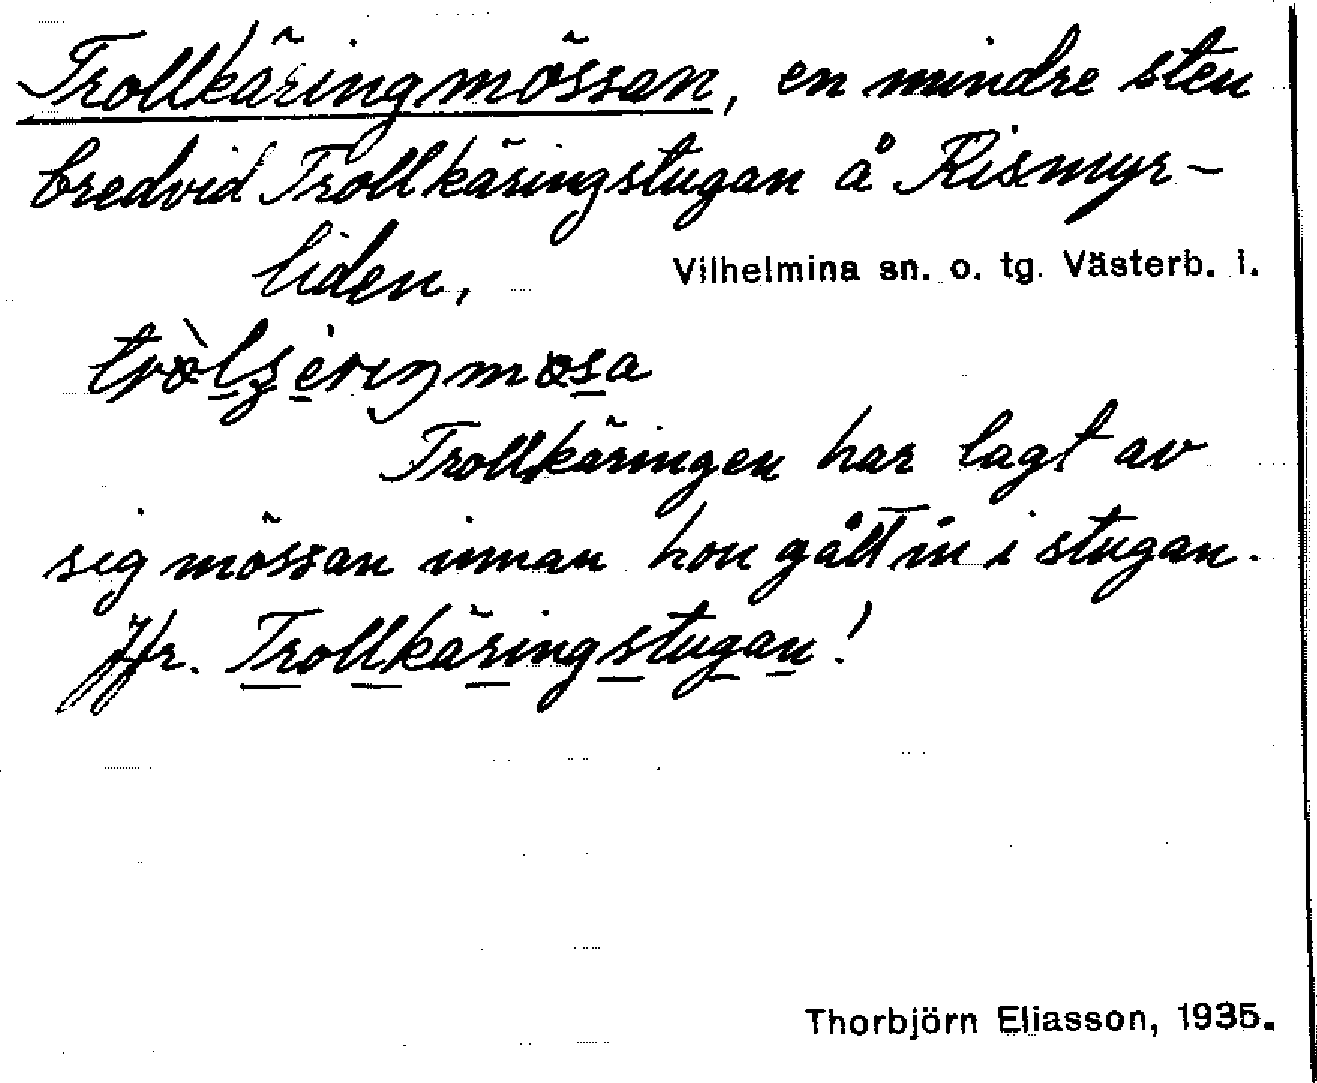 Trollkäringmössan, en mindre sten
bredvid Trollkäringstugan å Rismyr-
liden,
Vilhelmina sn. o. tg. Västerb. l.
Trollkäringen har lagt av
sig mössan innan hon gått in i stugan.
Jfr. Trollkäringstugan!
Thorbjörn Eliasson, 1935.